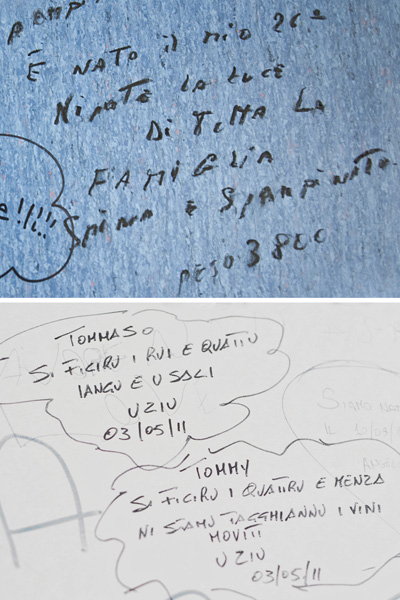 È NATO il mio 26º
NipotE la lucE
Di TuttA LA
FAMiGLiA
SpinA E SpAmpinATo
peso 3800
e!!!!!
TOMMASO
SI FICIRU I RUI E QUATTU
IANGU E U SALI
UZIU
03/05/11
TOMMY
SI FICIRU I QUATTRU E MENZA
NI STAMU TAGGHIANNU I VINI
MOVITI
UZIU
03/05/11
SIAMO NAT
IL